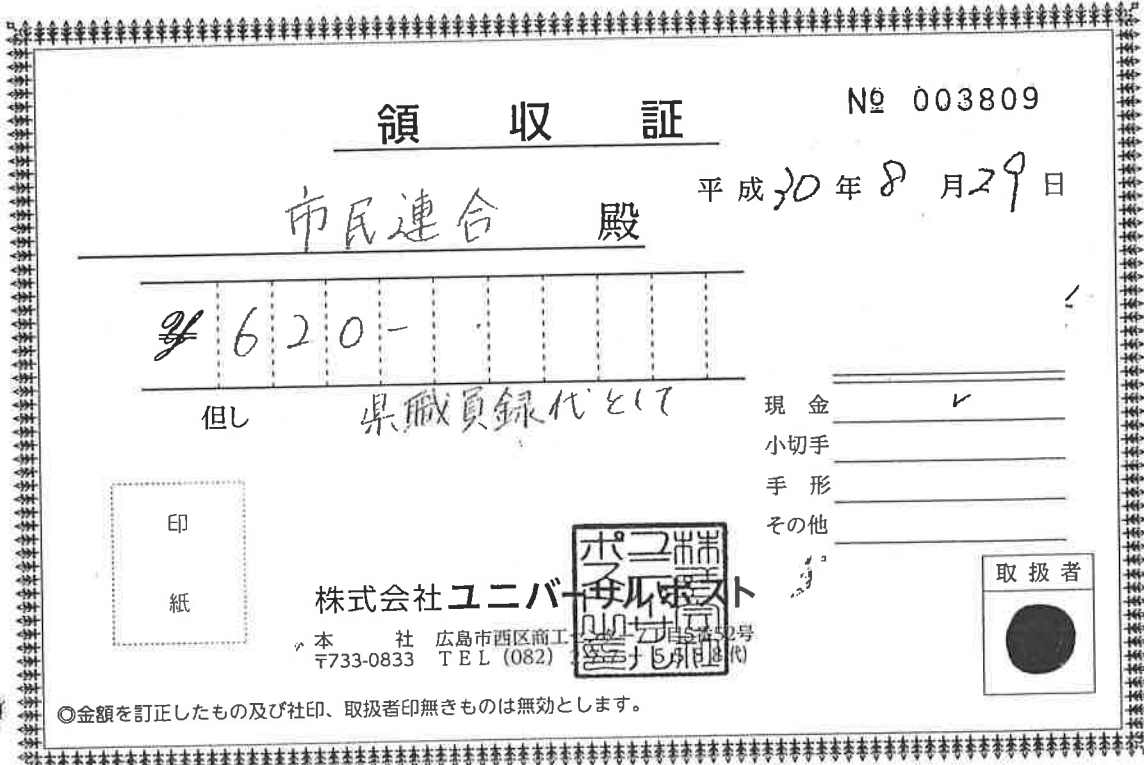 領収証
№ 003809
平成30年8月29日
市民連合 殿
¥620-
但し 県職員録代として
現金 ✓
小切手
手形
その他
印
紙
取扱者
株式会社ユニバーサルポスト
本社 広島市西区商工
〒733-0833 TEL (082)
◎金額を訂正したもの及び社印、取扱者印無きものは無効とします。